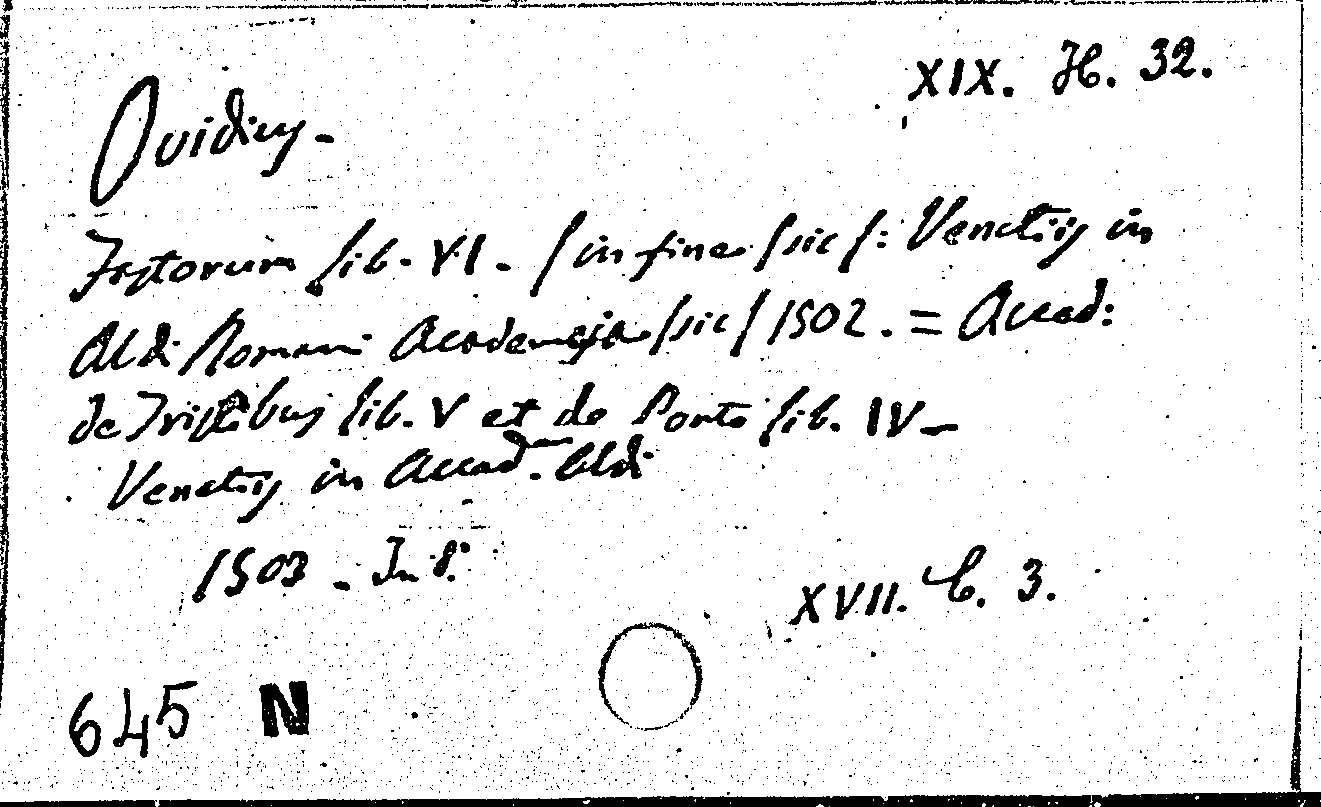 XIX. H. 32.
Ovidius -
Fastorum lib. VI. / in fine / sic /: Venetiis in
Aldi Romani Academeja / sic / 1502. = Accad:
de Tristibus lib. V et de Ponto lib. IV -
Venetiis in Accad. Aldi
1503 - In 8.º
XVII. C. 3.
645 N